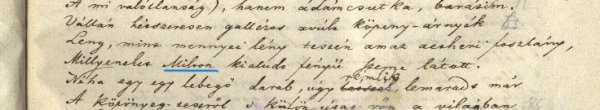 A mi valótlanság), hanem ádámcsutka, barátim.
Vállán hétszeresen galléros köpeny-árnyék
Leng, mint mennyei lény testén amaz aetheri foszlány,
Millyeneket Milton kialudt fényű szeme látott.
Néha egy egy lebegő darab, úgy rémlik, lemarad már
A köpönyeg a világban